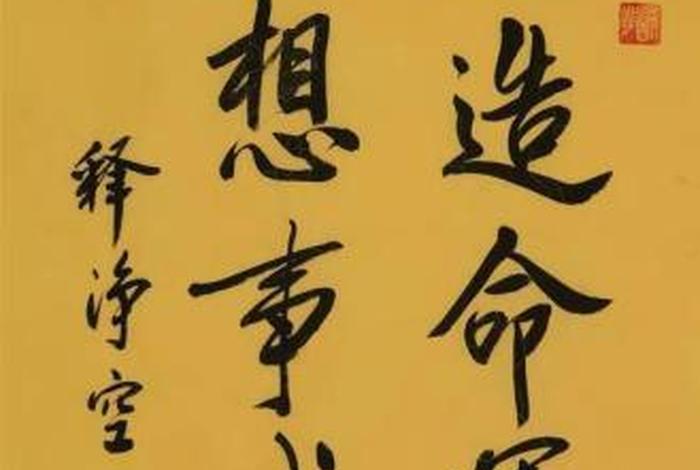 造命
想事
释净空